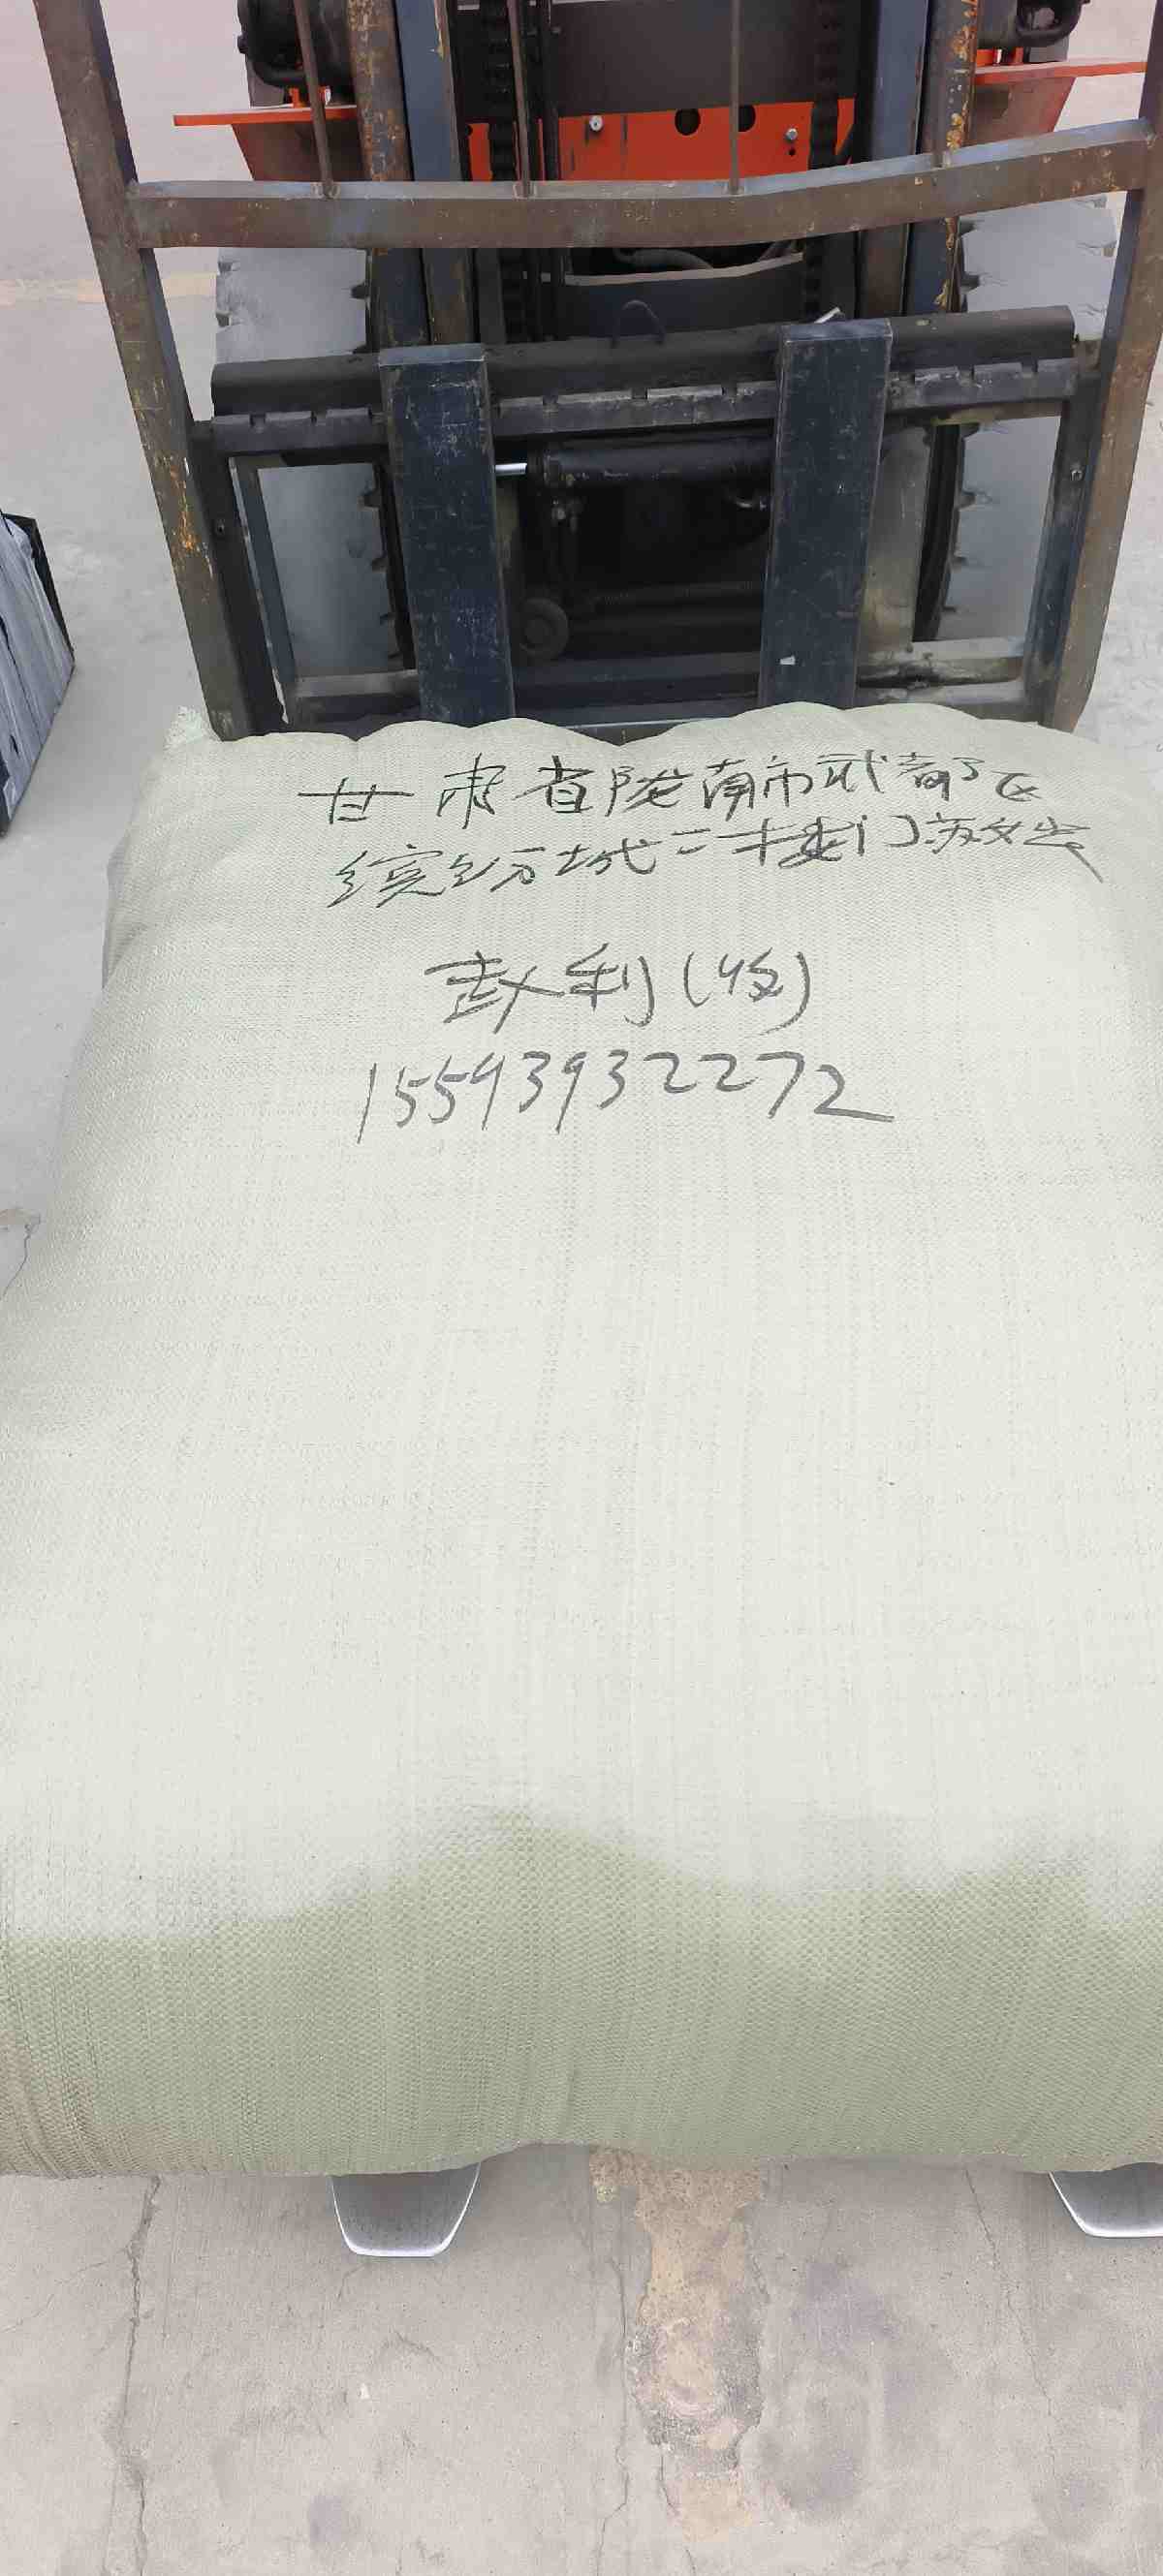 甘肃省陇南市武都区
缤纷城二楼门
赵利(收)
15593932272